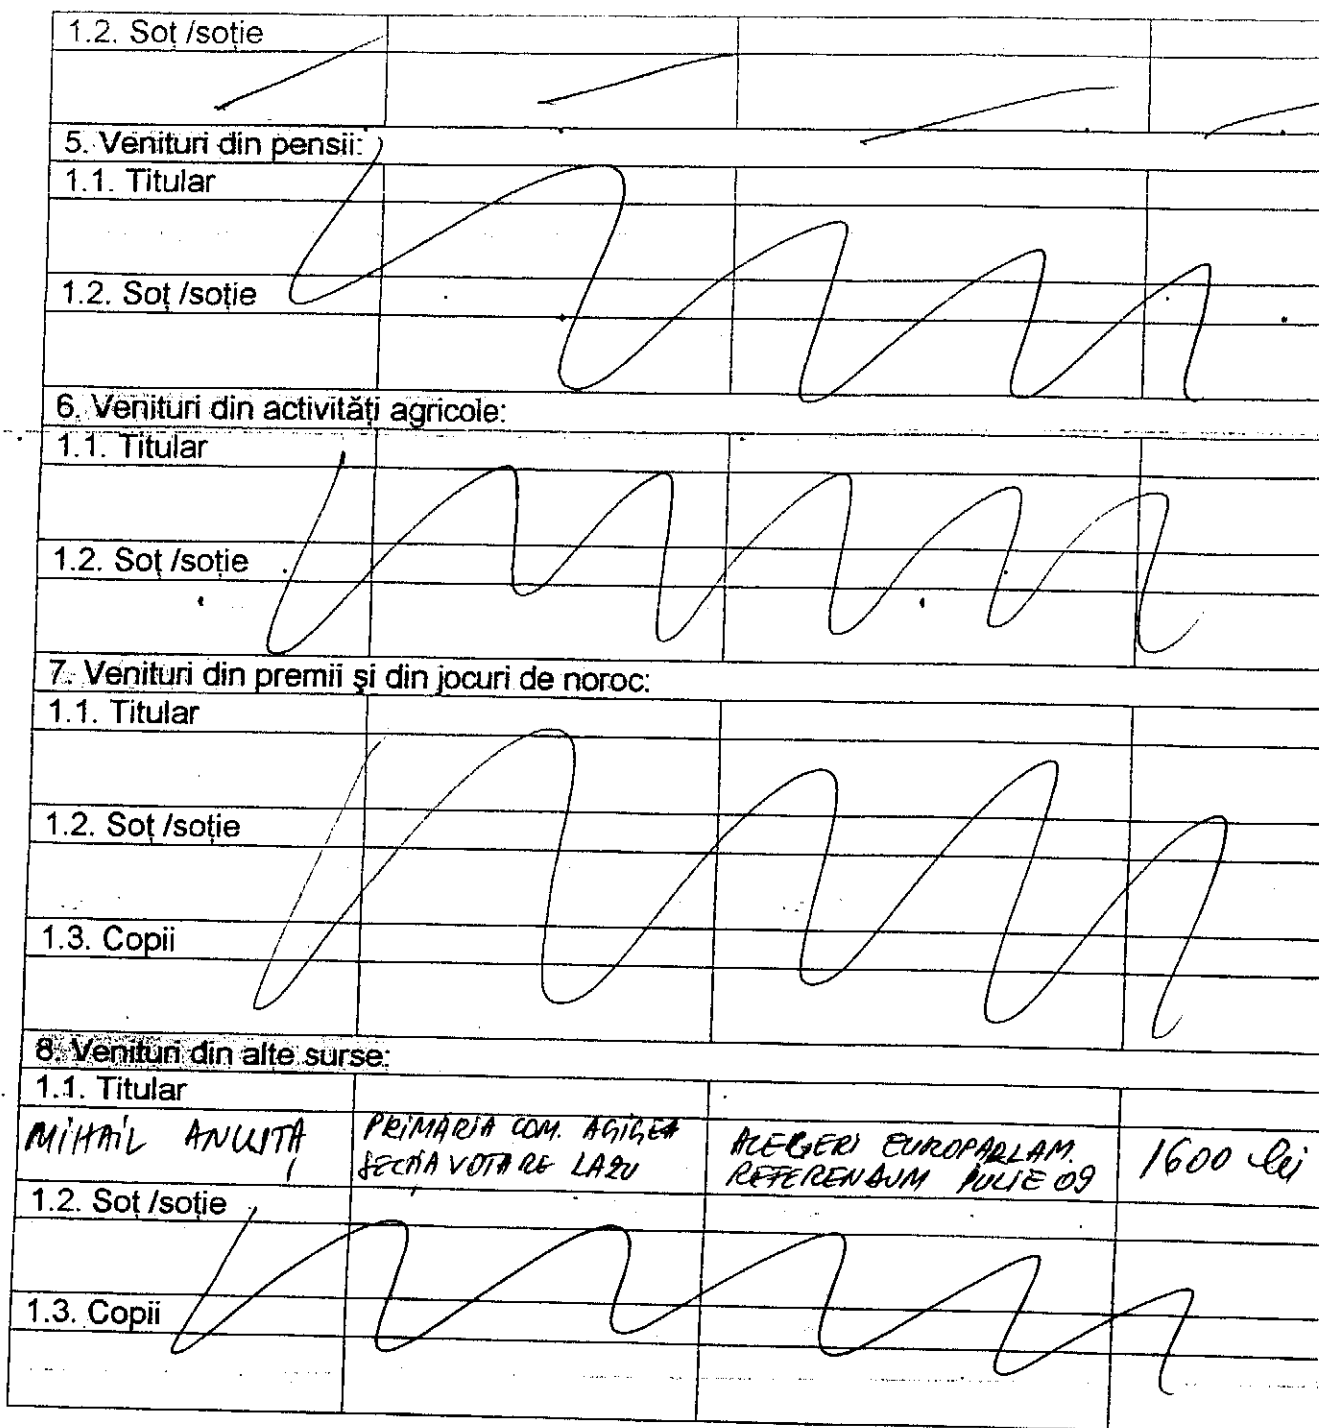 1.2. Soț /soție
5. Venituri din pensii:
1.1. Titular
1.2. Soț /soție
6. Venituri din activități agricole:
1.1. Titular
1.2. Soț /soție
7. Venituri din premii și din jocuri de noroc:
1.1. Titular
1.2. Soț /soție
1.3. Copii
8. Venituri din alte surse:
1.1. Titular
MIHAIL ANUȚA
PRIMĂRIA COM. AGIGEA
SECȚIA VOTARE LAZU
ALEGERI EUROPARLAM.
REFERENDUM IULIE 09
1600 lei
1.2. Soț /soție
1.3. Copii